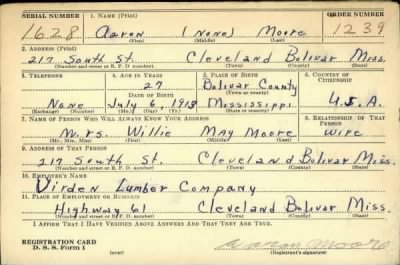 SERIAL NUMBER 1. NAME (Print) ORDER NUMBER
1628 Aaron (None) Moore 1239
(First) (Middle) (Last)
2. ADDRESS (Print)
217 South St. Cleveland Bolivar Miss.
(Number and street or R. F. D. number) (Town) (County) (State)
3. TELEPHONE 4. AGE IN YEARS 5. PLACE OF BIRTH 6. COUNTRY OF CITIZENSHIP
27 Bolivar County
DATE OF BIRTH (Town or county)
None July 6, 1913 Mississippi U.S.A.
(Exchange) (Number) (Mo.) (Day) (Yr.) (State or country)
7. NAME OF PERSON WHO WILL ALWAYS KNOW YOUR ADDRESS 8. RELATIONSHIP OF THAT PERSON
Mrs. Willie May Moore Wife
(Mr., Mrs., Miss) (First) (Middle) (Last)
9. ADDRESS OF THAT PERSON
217 South St. Cleveland Bolivar Miss.
(Number and street or R. F. D. number) (Town) (County) (State)
10. EMPLOYER'S NAME
Virden Lumber Company
11. PLACE OF EMPLOYMENT OR BUSINESS
Highway 61 Cleveland Bolivar Miss.
(Number and street or R. F. D. number) (Town) (County) (State)
I AFFIRM THAT I HAVE VERIFIED ABOVE ANSWERS AND THAT THEY ARE TRUE.
REGISTRATION CARD
D. S. S. Form 1 (over) Aaron Moore
(Registrant's signature)